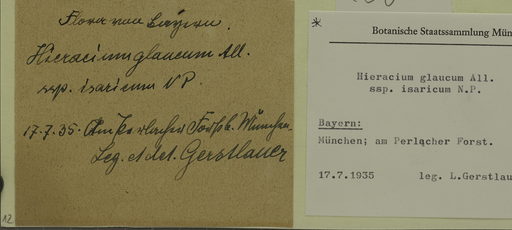 Flora von Bayern.
Hieracium glaucum All.
ssp. isaricum N P.
17.7.35. Am Perlacher Forst b. München
Leg. et det. Gerstlauer
12
*
Botanische Staatssammlung Mün
Hieracium glaucum All.
ssp. isaricum N.P.
Bayern:
München; am Perlacher Forst.
17.7.1935 leg. L.Gerstlau